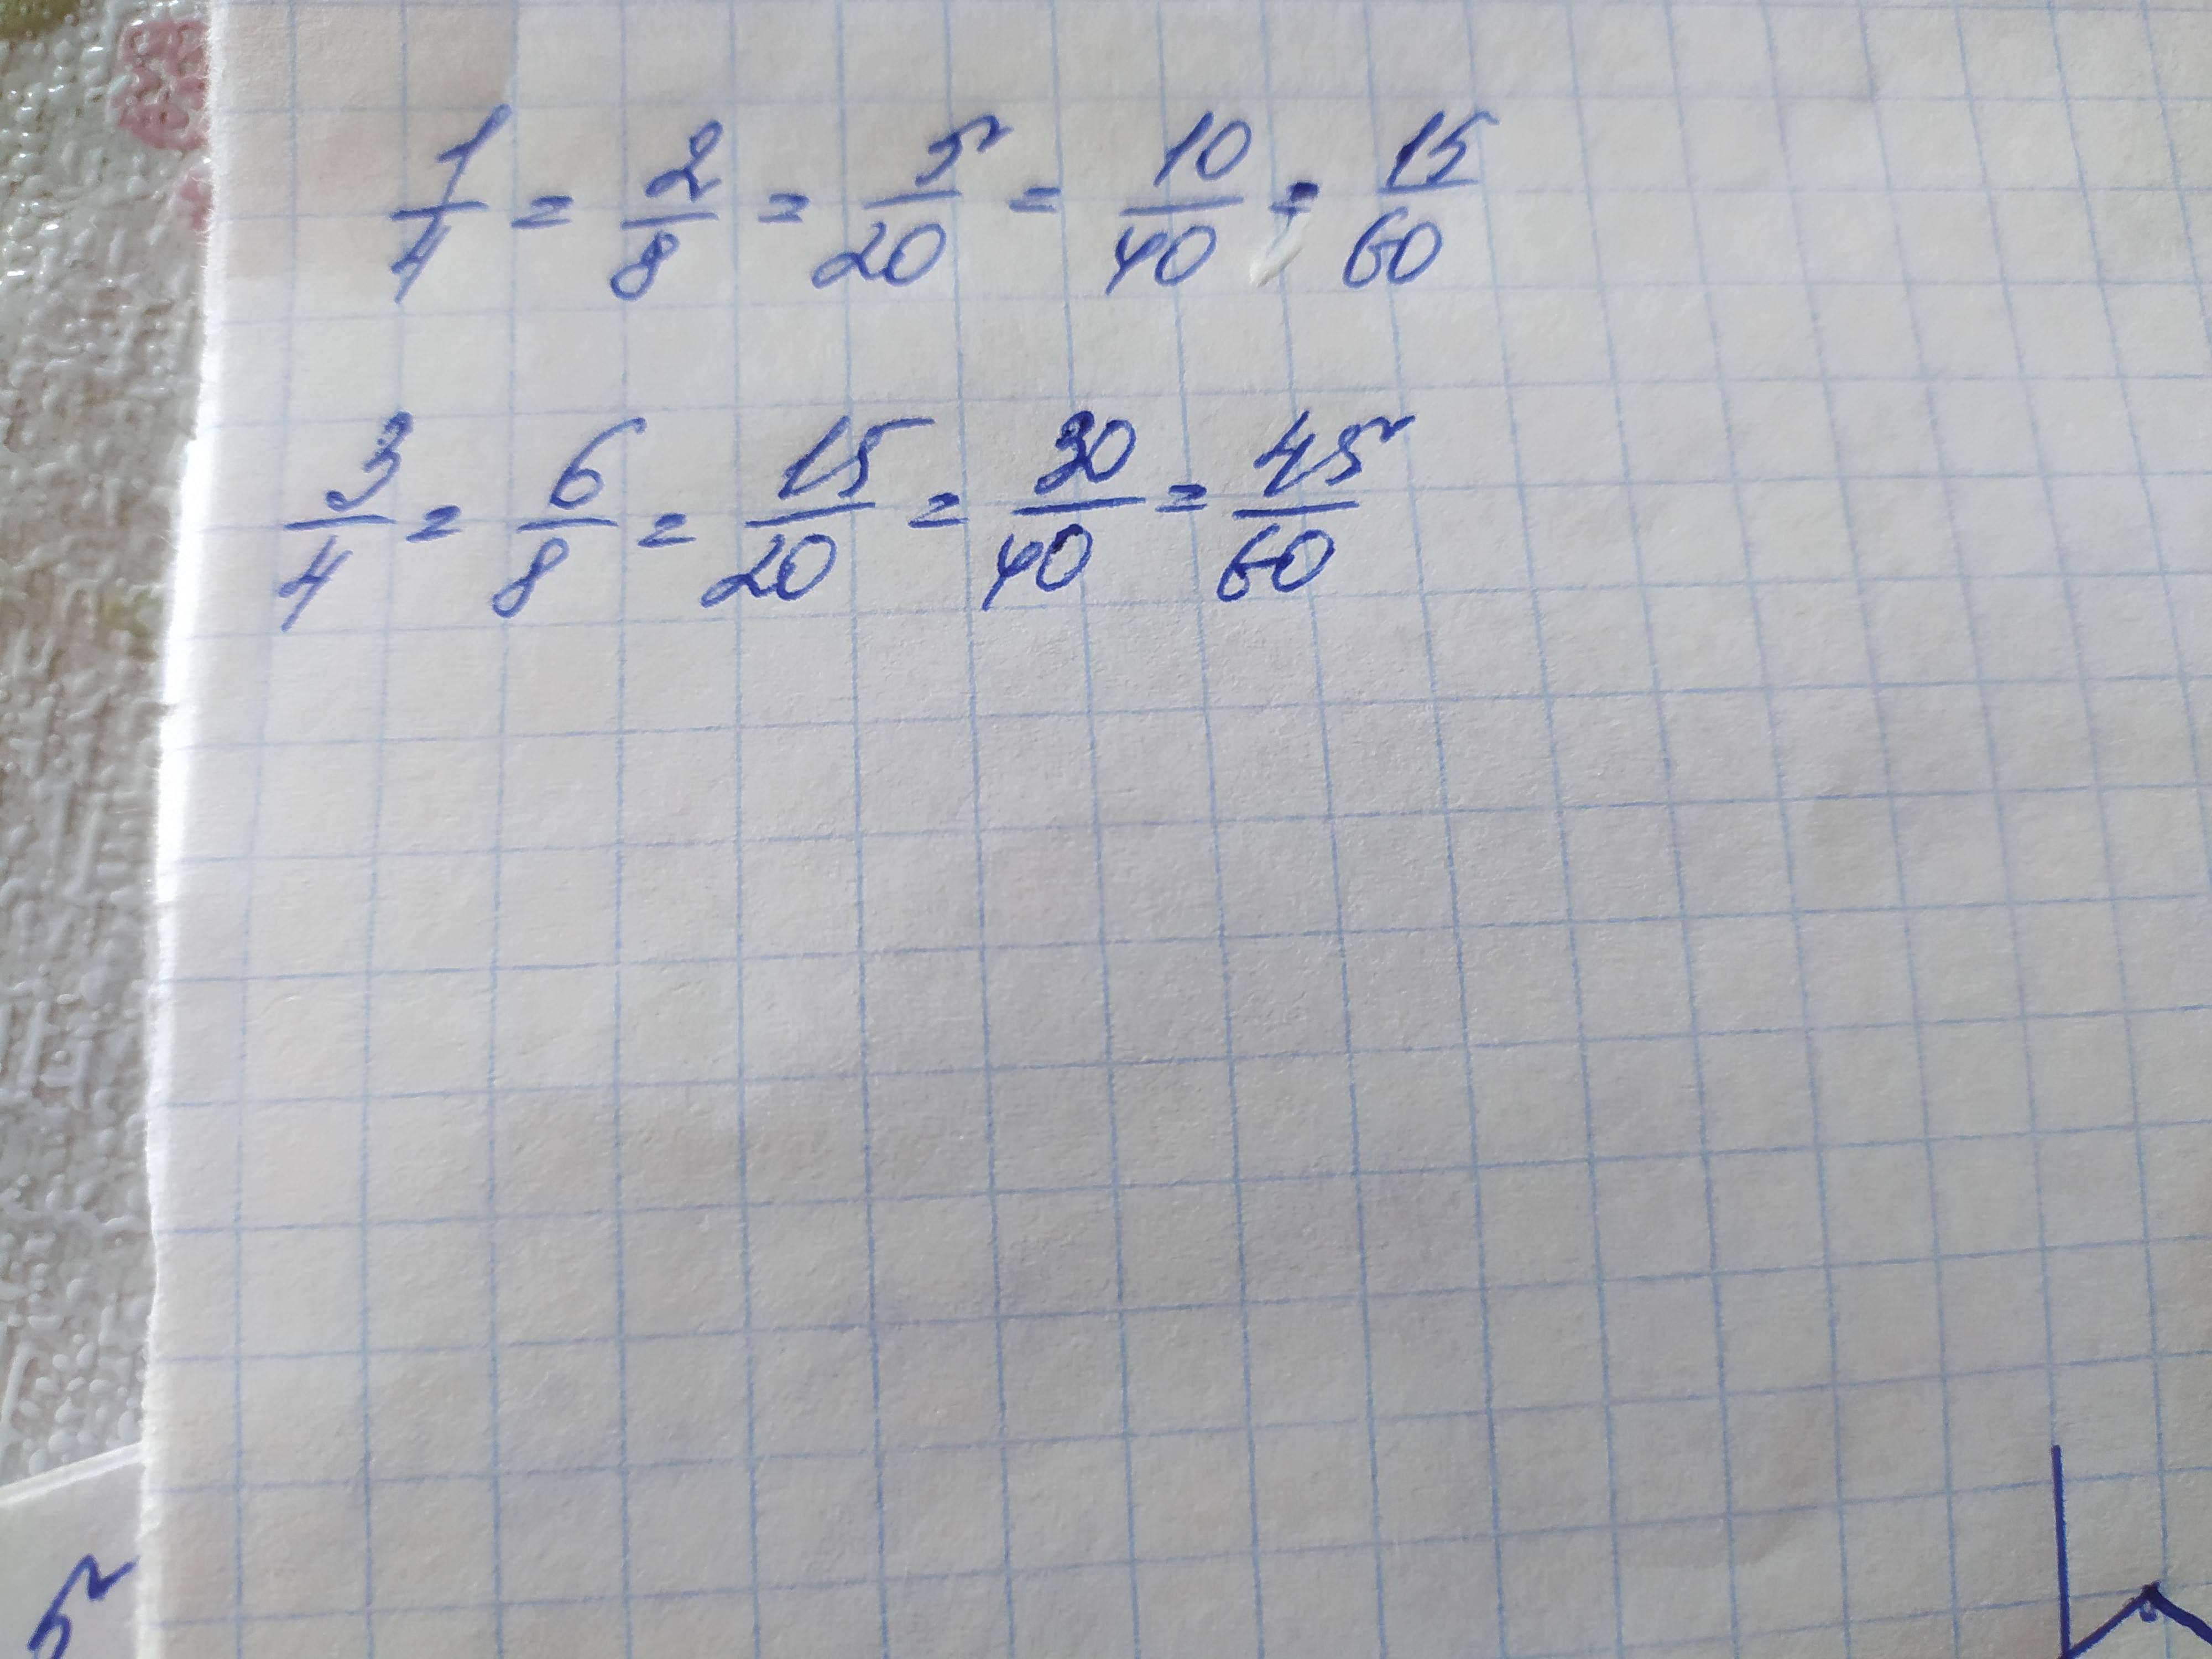 1/4 = 2/8 = 5/20 = 10/40 = 15/60
3/4 = 6/8 = 15/20 = 30/40 = 45/60
5